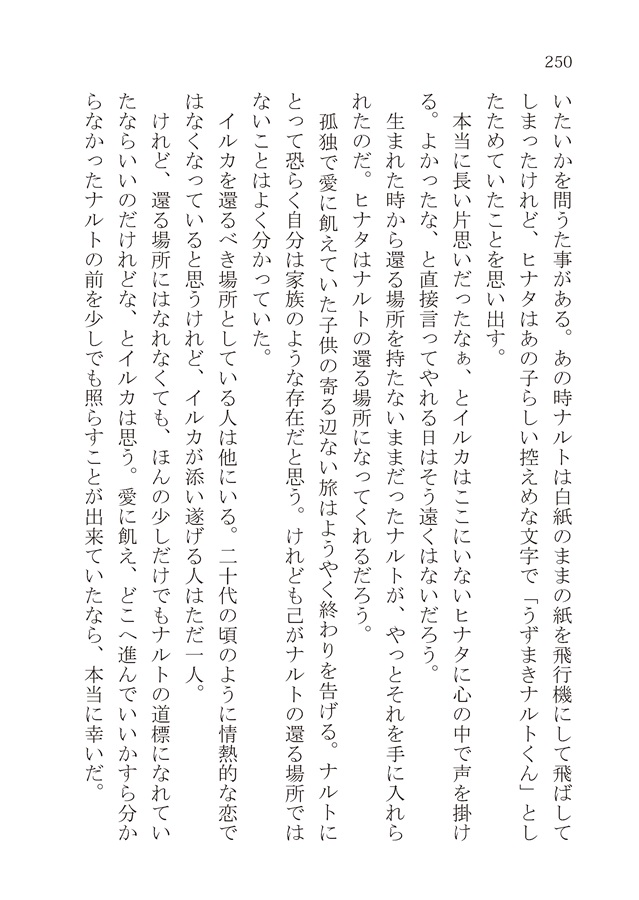 250
いたいかを問うた事がある。あの時ナルトは白紙のままの紙を飛行機にして飛ばして
しまったけれど、ヒナタはあの子らしい控えめな文字で「うずまきナルトくん」とし
たためていたことを思い出す。
本当に長い片思いだったなぁ、とイルカはここにいないヒナタに心の中で声を掛け
る。よかったな、と直接言ってやれる日はそう遠くはないだろう。
生まれた時から還る場所を持たないままだったナルトが、やっとそれを手に入れら
れたのだ。ヒナタはナルトの還る場所になってくれるだろう。
孤独で愛に飢えていた子供の寄る辺ない旅はようやく終わりを告げる。ナルトに
とって恐らく自分は家族のような存在だと思う。けれども己がナルトの還る場所では
ないことはよく分かっていた。
イルカを還るべき場所としている人は他にいる。二十代の頃のように情熱的な恋で
はなくなっていると思うけれど、イルカが添い遂げる人はただ一人。
けれど、還る場所にはなれなくても、ほんの少しだけでもナルトの道標になれてい
たならいいのだけれどな、とイルカは思う。愛に飢え、どこへ進んでいいかすら分か
らなかったナルトの前を少しでも照らすことが出来ていたなら、本当に幸いだ。